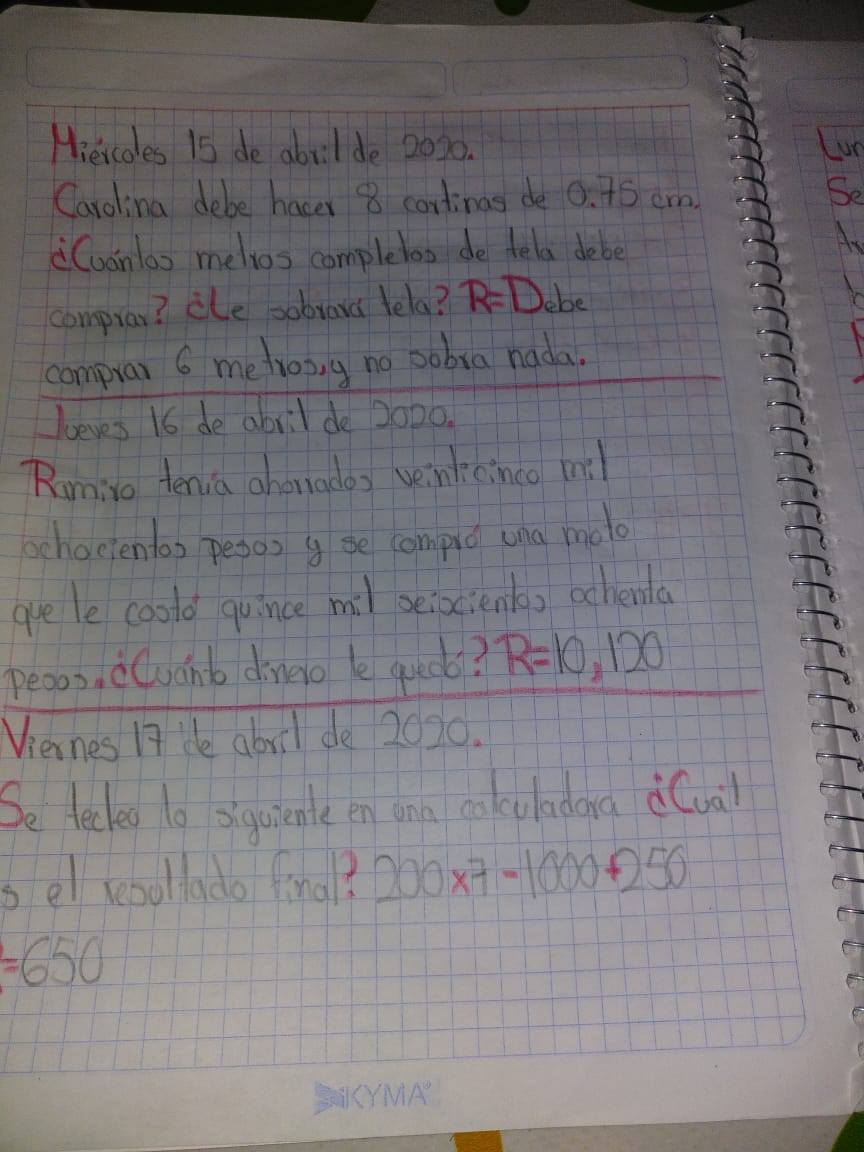 Miércoles 15 de abril de 2020.
Carolina debe hacer 8 cortinas de 0.75 cm.
¿Cuántos metros completos de tela debe
comprar? ¿Le sobrará tela? R=Debe
comprar 6 metros, y no sobra nada.
Jueves 16 de abril de 2020.
Ramiro tenia ahorrados veinticinco mil
ochocientos pesos y se compró una moto
que le costó quince mil seiscientos ochenta
pesos. ¿Cuánto dinero le quedó? R=10,120
Viernes 17 de abril de 2020.
Se tecleo lo siguiente en una calculadora ¿Cuál
s el resultado final? 200x7-1000+250
=650
KYMA
Lun
Se